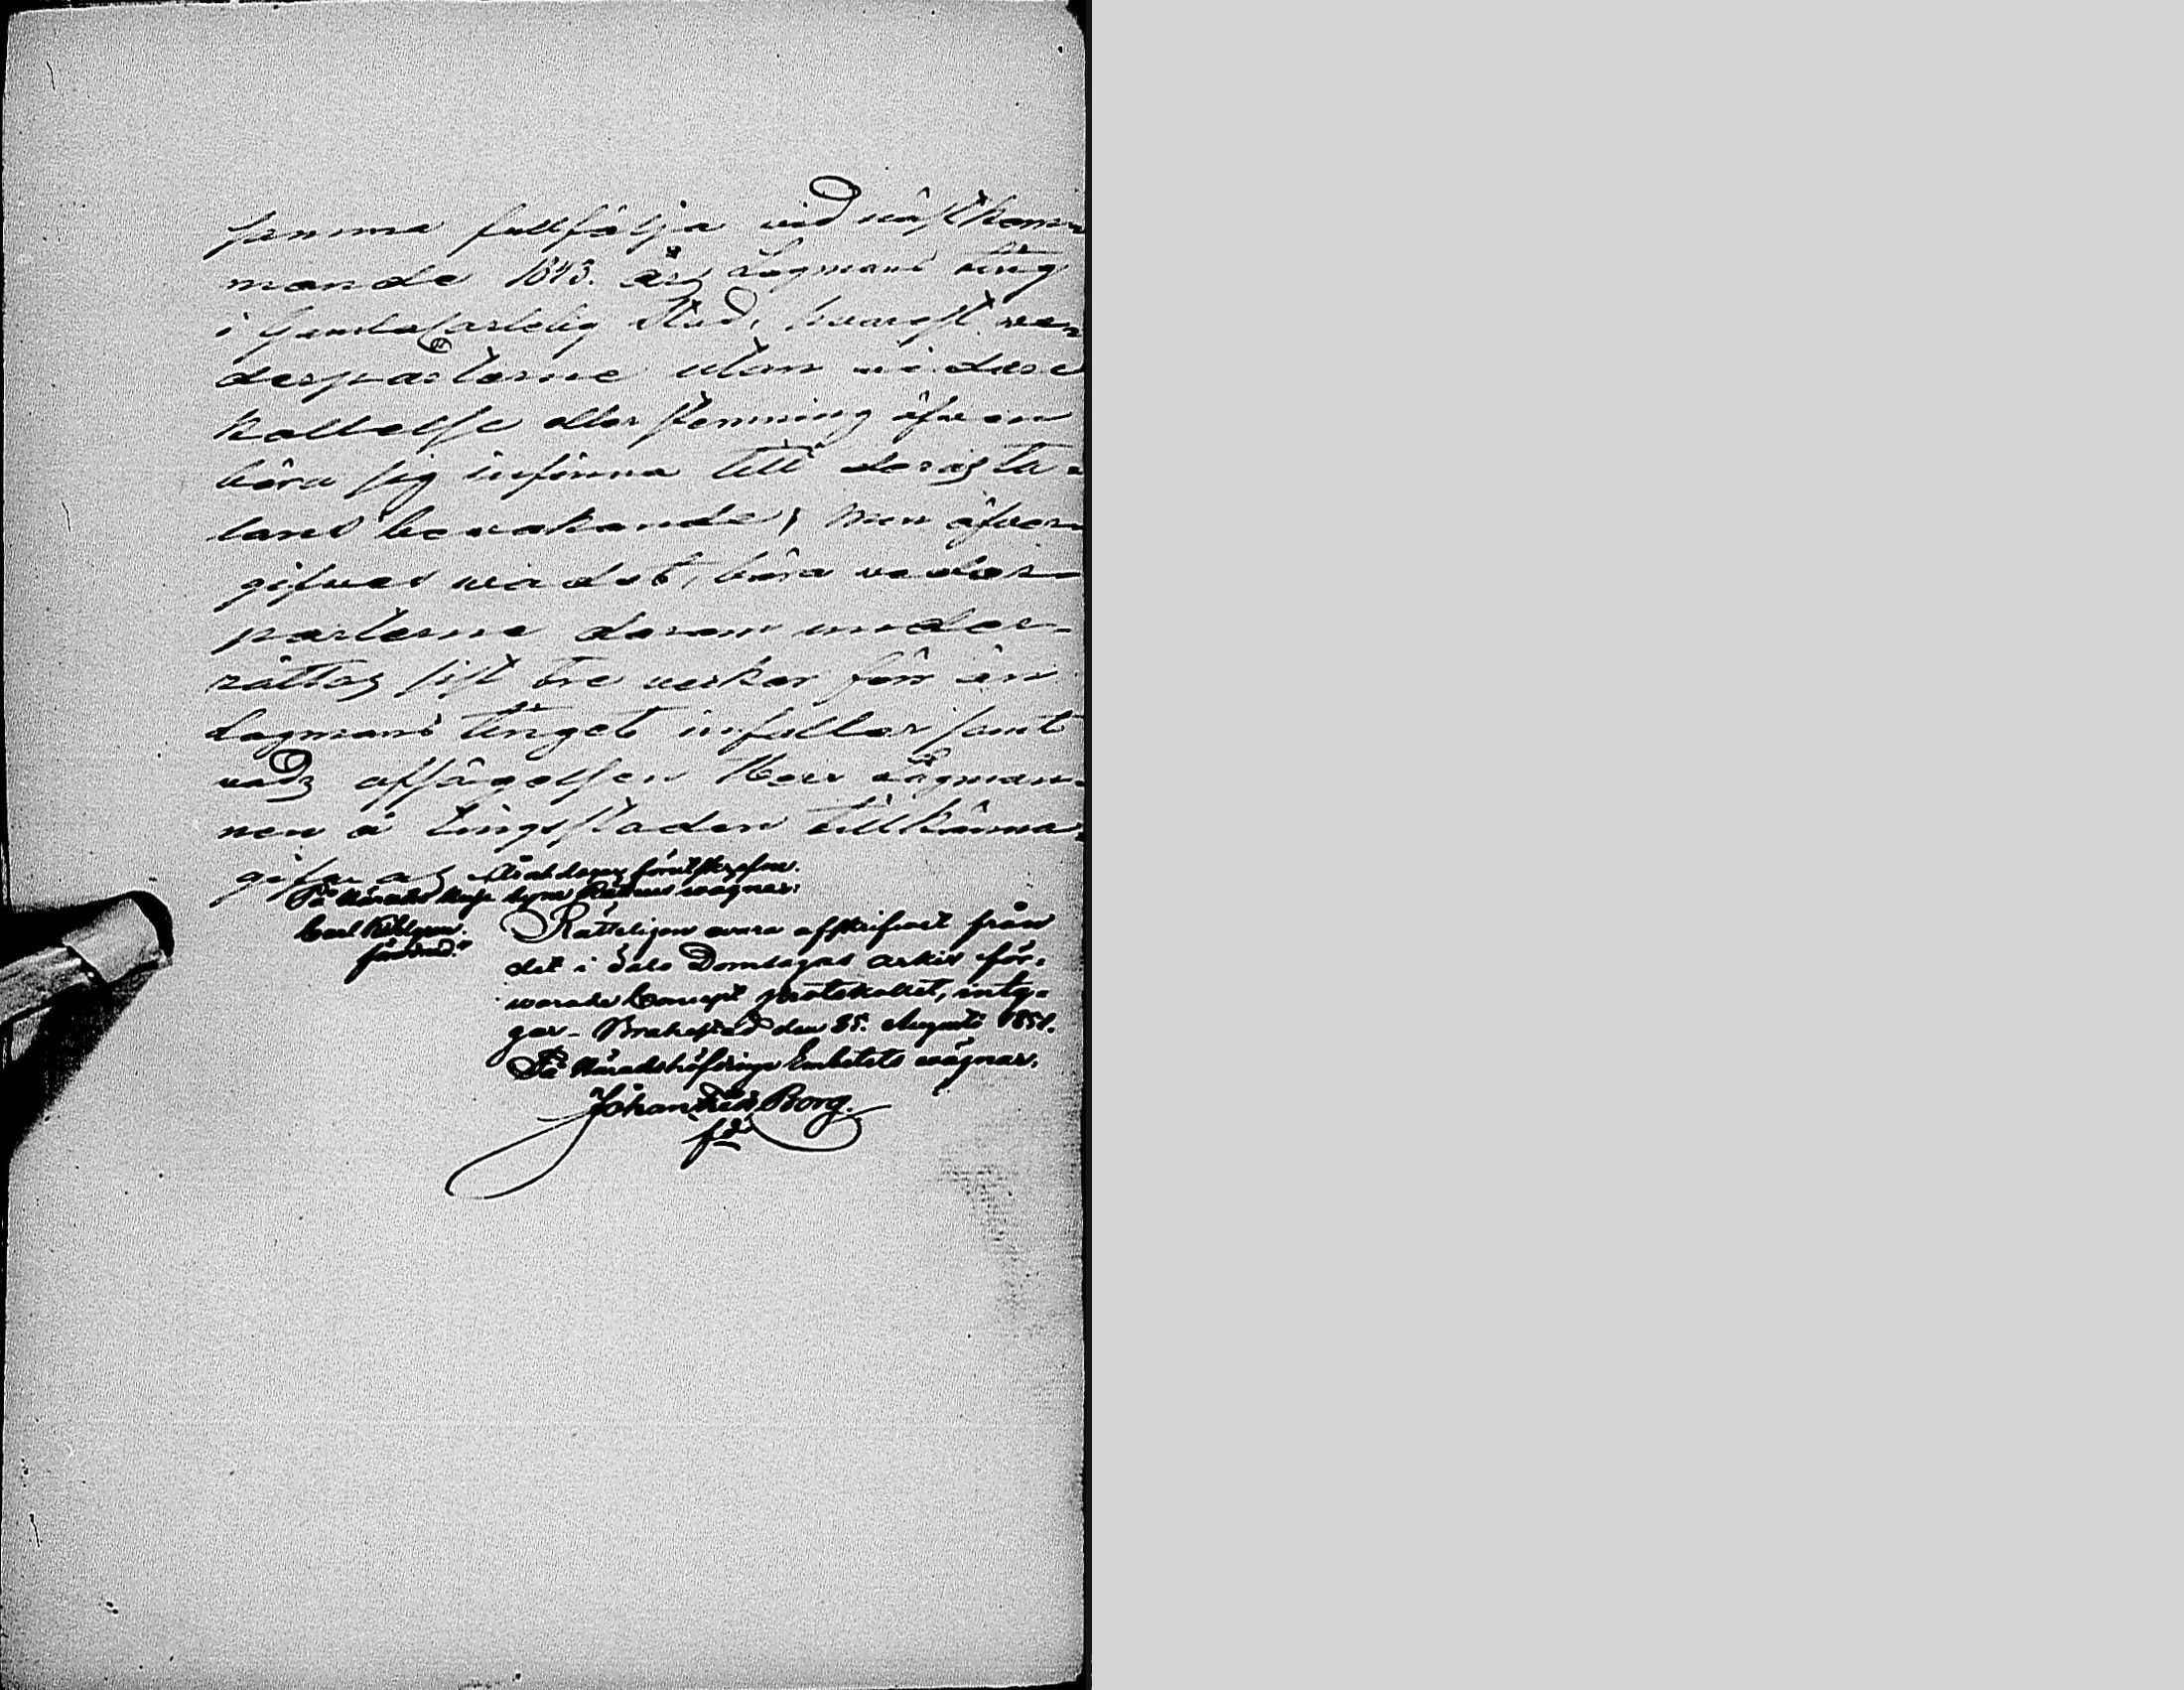 samma fullfölja vid nästkom-
mande 1843. års Lagmans ting
i Gamlakarleby Stad, hvarest ve-
derparterne utan vidare
kallelse eller stemning äfven
böra sig infinna till deras ta-
lans bevakande; men öfver
gifves vadet, böra veder-
parterne derom under-
rättas sist tre veckor förr än
Lagmans tinget infaller samt
vads afsägelsen Herr Lagman-
nen å tingsstaden tillkänna-
gifvas. År och dagar förutskrefne.
På Härads wägnar:
Carl
Rätteligen vara afskrifvet från
det i dato Domsagas arkiv för-
warade Concept protokollet, inty-
gar. Brahestad den 25. Augusti 1851.
På Häradshöfdinge Embetets wägnar,
Johan Borg.